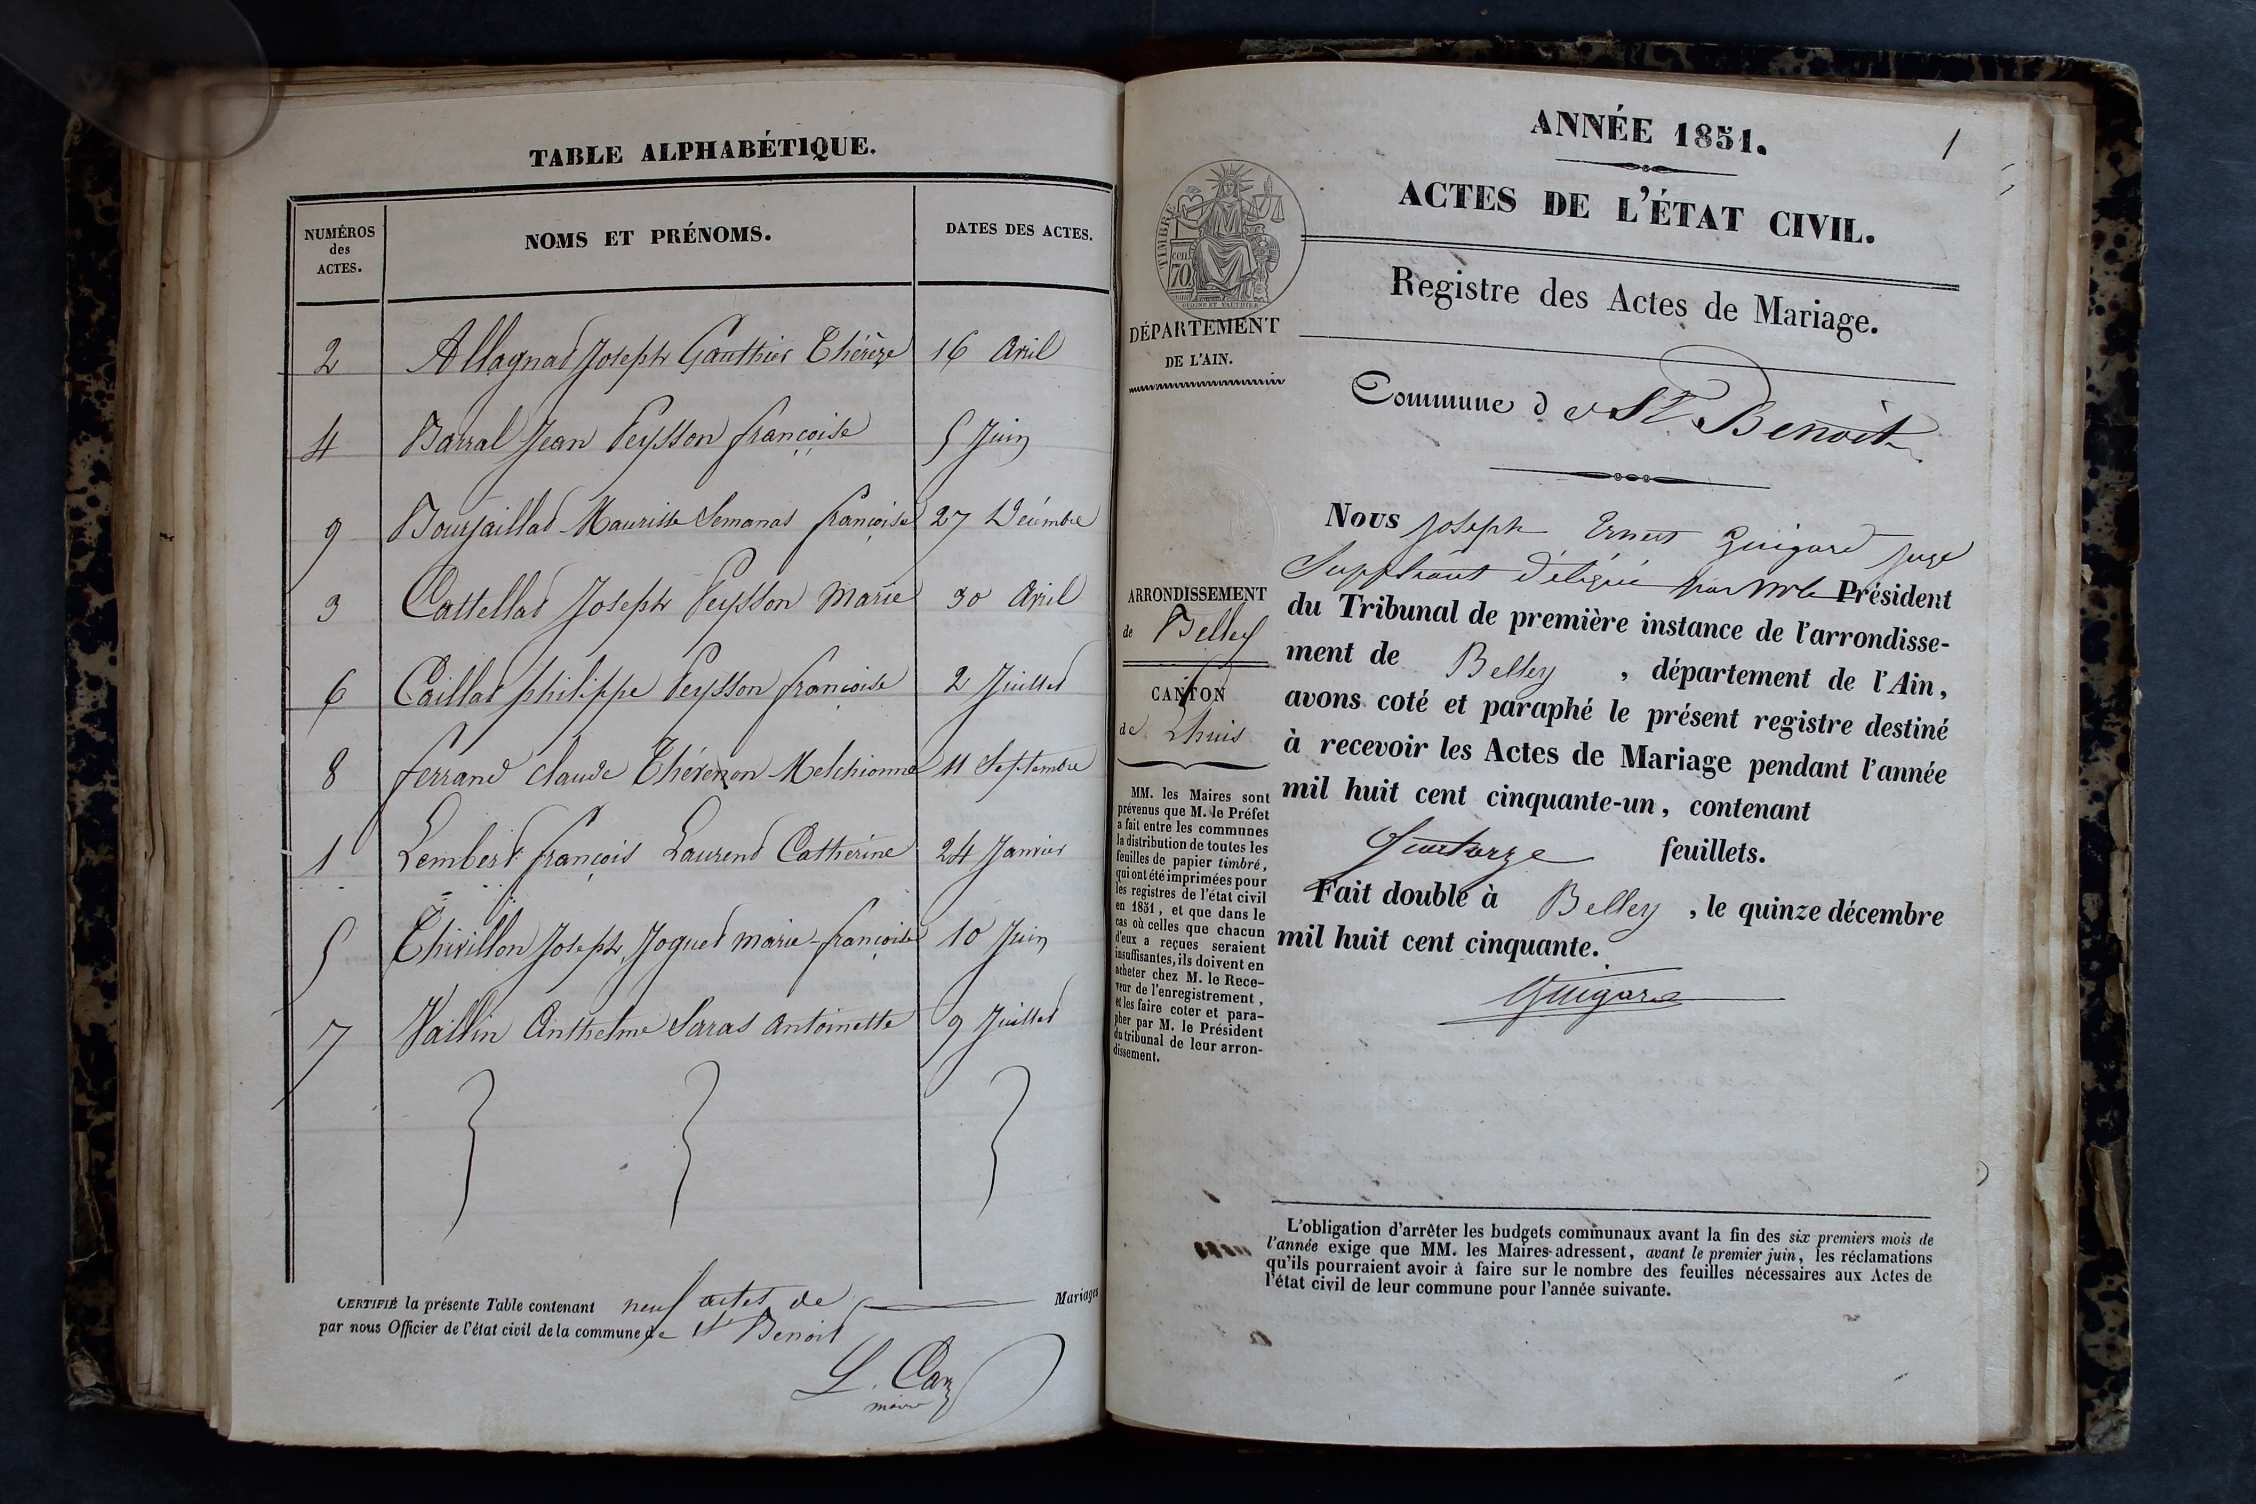 TABLE ALPHABÉTIQUE.
NUMÉROS des ACTES.
NOMS ET PRÉNOMS.
DATES DES ACTES.
2 Allagnat Joseph Gauthier Thérèze 16 Avril
4 Barral Jean Peysson françoise 5 Juin
9 Bourjaillat Maurisse Semanas françoise 27 Décembre
3 Cattellat Joseph Peysson Marie 30 Avril
6 Caillat philippe Peysson françoise 2 Juillet
8 ferrand claude Thévenon Melchionne 11 Septembre
1 Lembert françois Laurend Catherine 24 Janvier
5 Thivillon Joseph Joguet marie-françoise 10 Juin
7 Vallin Anthelme Saras antoinette 9 Juillet
CERTIFIÉ la présente Table contenant neuf actes de Mariages
par nous Officier de l'état civil de la commune de St Benoit
maire
1
ANNÉE 1851.
ACTES DE L'ÉTAT CIVIL.
Registre des Actes de Mariage.
TIMBRE
70 cent
DÉPARTEMENT
DE L'AIN.
Commune de St Benoit
Nous Joseph Ernest Guigard juge
Suppléant délégué par Mr le Président
du Tribunal de première instance de l'arrondisse-
ment de Belley, département de l'Ain,
avons coté et paraphé le présent registre destiné
à recevoir les Actes de Mariage pendant l'année
mil huit cent cinquante-un, contenant
Quatorze feuillets.
Fait double à Belley, le quinze décembre
mil huit cent cinquante.
Guigard
ARRONDISSEMENT
de Belley
CANTON
de Lhuis
MM. les Maires sont
prévenus que M. le Préfet
a fait entre les communes
la distribution de toutes les
feuilles de papier timbré,
qui ont été imprimées pour
les registres de l'état civil
en 1851, et que dans le
cas où celles que chacun
d'eux a reçues seraient
insuffisantes, ils doivent en
acheter chez M. le Rece-
veur de l'enregistrement,
et les faire coter et para-
pher par M. le Président
du tribunal de leur arron-
dissement.
L'obligation d'arrêter les budgets communaux avant la fin des six premiers mois de
l'année exige que MM. les Maires adressent, avant le premier juin, les réclamations
qu'ils pourraient avoir à faire sur le nombre des feuilles nécessaires aux Actes de
l'état civil de leur commune pour l'année suivante.